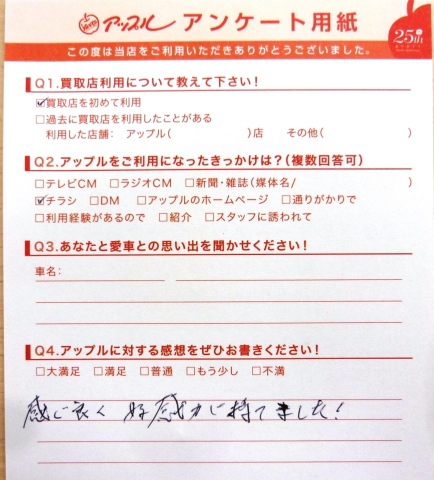 Hearty アップル アンケート用紙
この度は当店をご利用いただきありがとうございました。
25th
Q1.買取店利用について教えて下さい!
☑買取店を初めて利用
□過去に買取店を利用したことがある
利用した店舗: アップル( )店 その他( )
Q2.アップルをご利用になったきっかけは?(複数回答可)
□テレビCM □ラジオCM □新聞・雑誌(媒体名/ )
☑チラシ □DM □アップルのホームページ □通りがかりで
□利用経験があるので □紹介 □スタッフに誘われて
Q3.あなたと愛車との思い出を聞かせてください!
車名:
Q4.アップルに対する感想をぜひお書きください!
□大満足 □満足 □普通 □もう少し □不満
感じ良く 好感カに持てました!